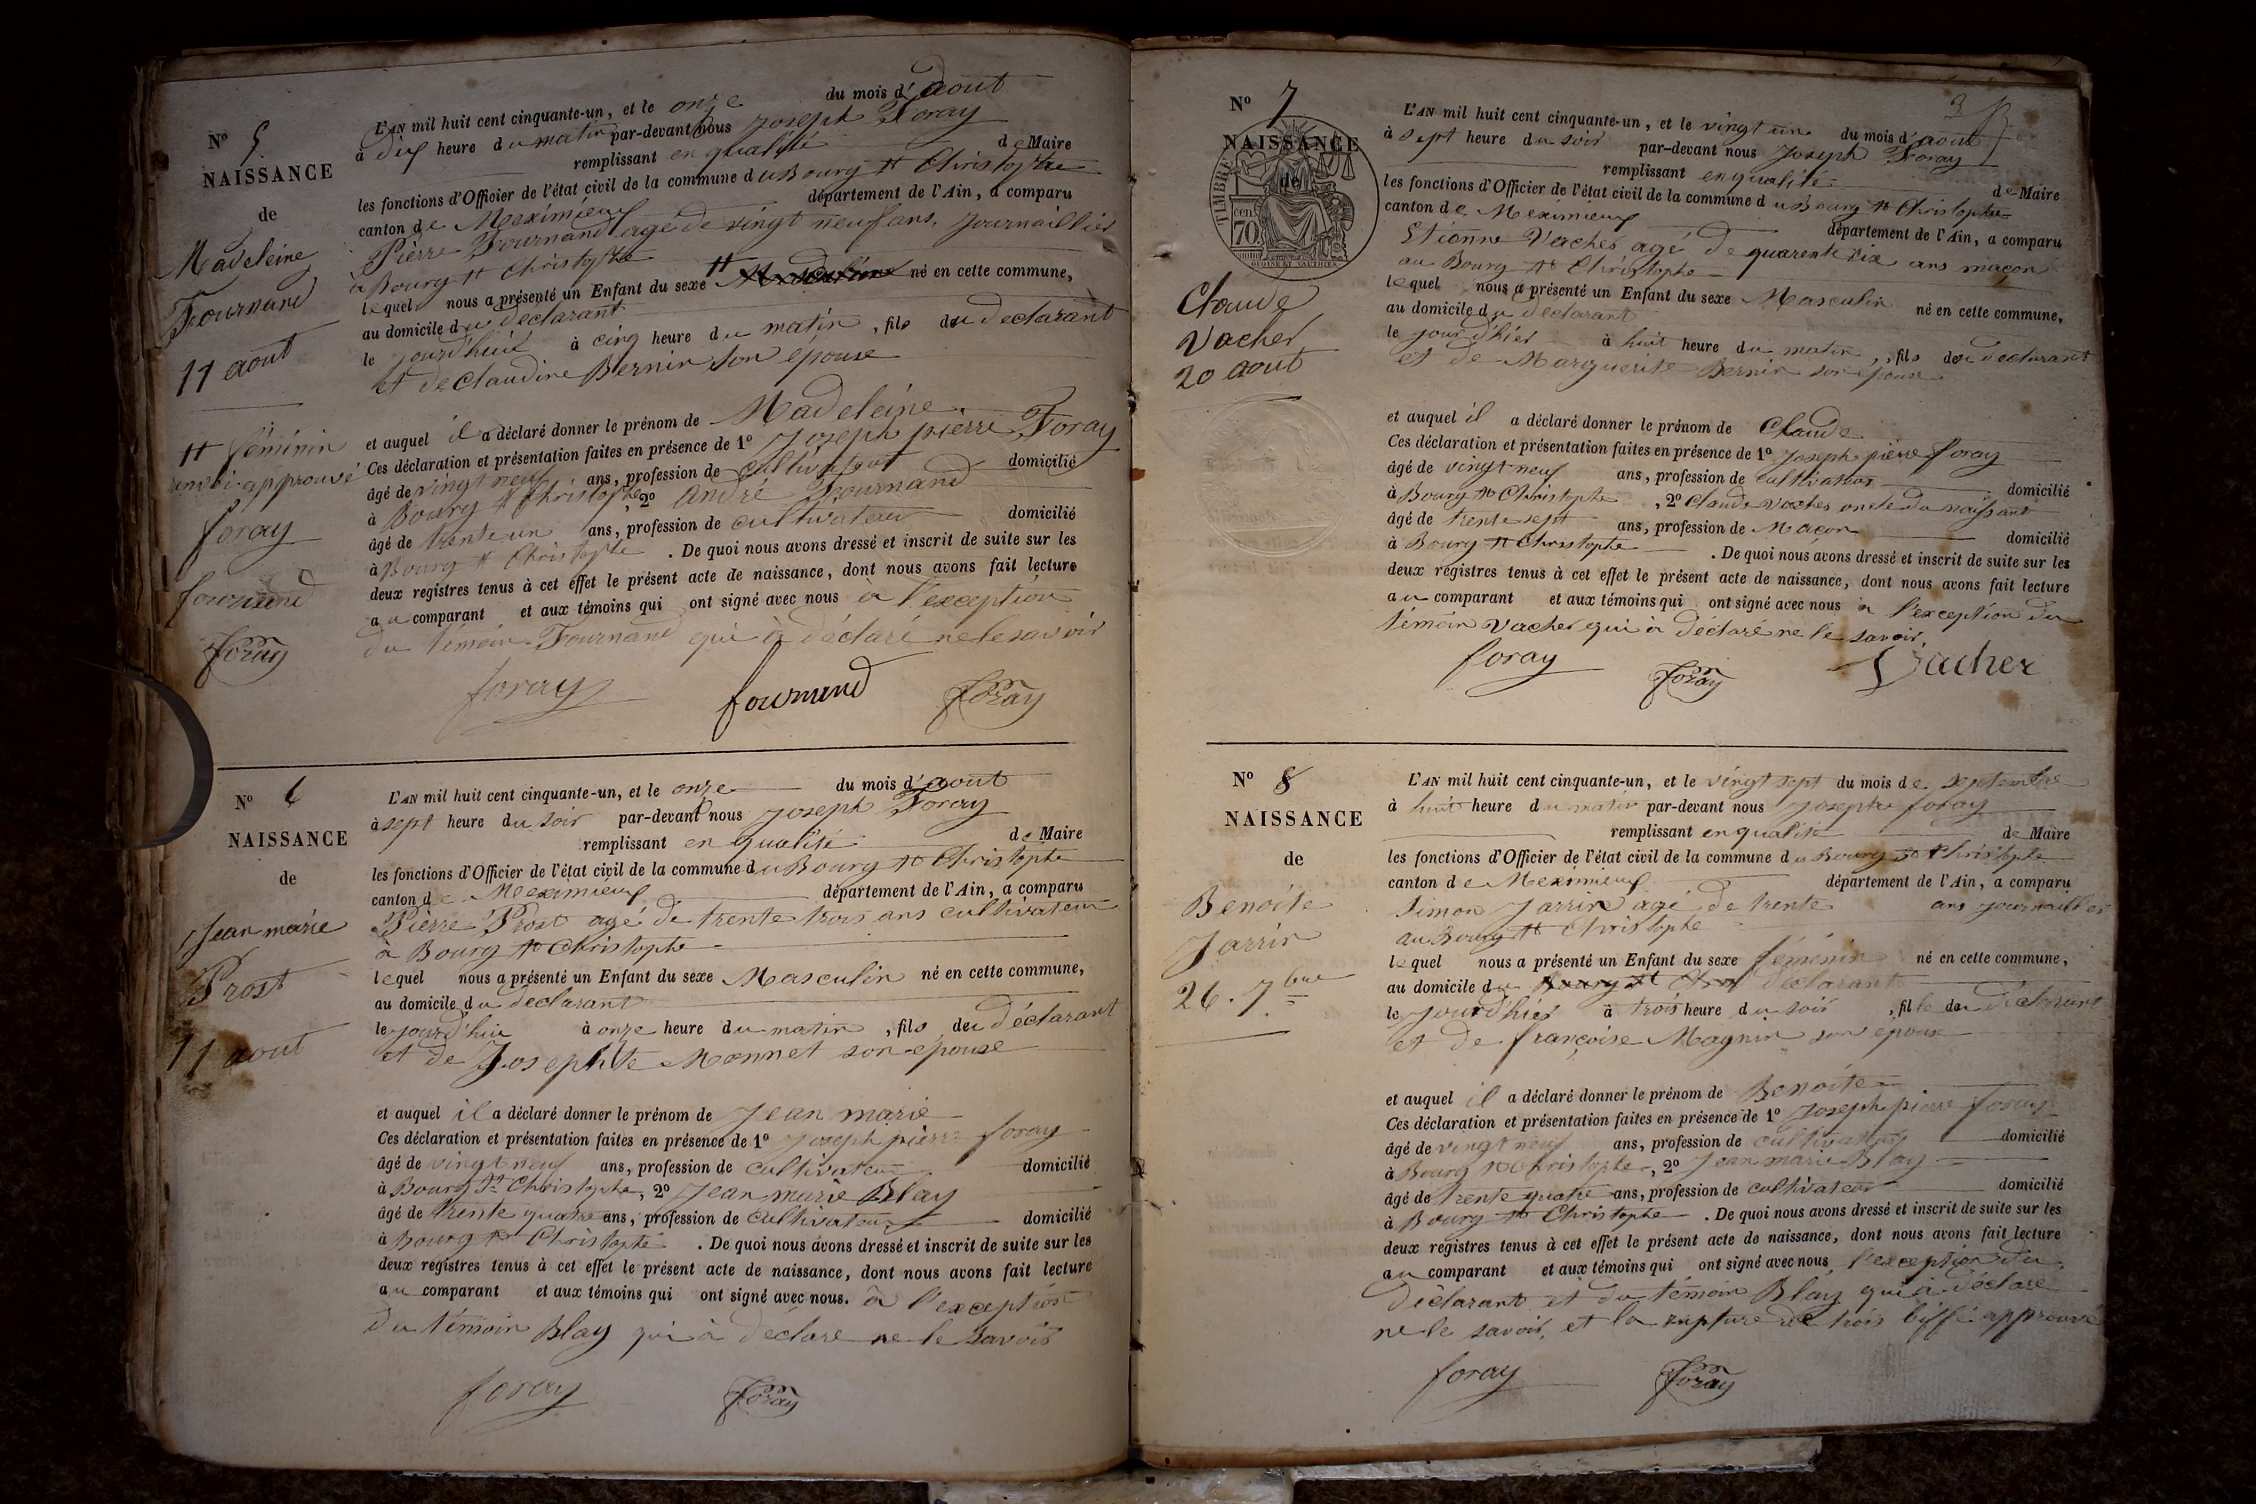 N° 5
NAISSANCE
de
Madeleine
Fournand
11 aout
H féminin
renvoi approuvé
foray
fournand
foray
L'AN mil huit cent cinquante-un, et le onze du mois d'aout
à dix heure du matin par-devant nous Joseph Foray
remplissant en qualité de Maire
les fonctions d'Officier de l'état civil de la commune du Bourg St Christophe
canton de Meximieux département de l'Ain, a comparu
Pierre Fournand agé de vingt neuf ans, journaillier
à Bourg St Christophe
lequel nous a présenté un Enfant du sexe H né en cette commune,
au domicile du declarant
le jourd'huit à cinq heure du matin, fils du declarant
et de Claudine Bernin son épouse
et auquel il a déclaré donner le prénom de Madeleine
Ces déclaration et présentation faites en présence de 1° Joseph pierre Foray
âgé de vingt neuf ans, profession de cultivateur domicilié
à Bourg St Christophe, 2° André Fournand
âgé de trente un ans, profession de cultivateur domicilié
à Bourg St Christophe. De quoi nous avons dressé et inscrit de suite sur les
deux registres tenus à cet effet le présent acte de naissance, dont nous avons fait lecture
au comparant et aux témoins qui ont signé avec nous à l'exception
du témoin Fournand qui à déclaré ne le savoir
foray fournand foray
N° 6
NAISSANCE
de
Jean marie
Prost
11 aout
L'AN mil huit cent cinquante-un, et le onze du mois d'aout
à sept heure du soir par-devant nous Joseph Foray
remplissant en qualité de Maire
les fonctions d'Officier de l'état civil de la commune du Bourg St Christophe
canton de Meximieux département de l'Ain, a comparu
Pierre Prost agé de trente trois ans cultivateur
à Bourg St Christophe
lequel nous a présenté un Enfant du sexe Masculin né en cette commune,
au domicile du declarant
le jourd'hui à onze heure du matin, fils du déclarant
et de Josephte Monnet son epouse
et auquel il a déclaré donner le prénom de Jean marie
Ces déclaration et présentation faites en présence de 1° Joseph pierre foray
âgé de vingt neuf ans, profession de cultivateur domicilié
à Bourg St Christophe, 2° Jean marie Blay
âgé de trente quatre ans, profession de cultivateur domicilié
à Bourg St Christophe. De quoi nous avons dressé et inscrit de suite sur les
deux registres tenus à cet effet le présent acte de naissance, dont nous avons fait lecture
au comparant et aux témoins qui ont signé avec nous. à l'exception
du témoin Blay qui à déclaré ne le savoir
foray foray
3
N° 7
NAISSANCE
de
TIMBRE
70
Claude
Vacher
20 aout
L'AN mil huit cent cinquante-un, et le vingt un du mois d'aout
à sept heure du soir par-devant nous Joseph Foray
remplissant en qualité de Maire
les fonctions d'Officier de l'état civil de la commune du Bourg St Christophe
canton de Meximieux département de l'Ain, a comparu
Etienne Vacher agé de quarente six ans maçon
au Bourg St Christophe
lequel nous a présenté un Enfant du sexe Masculin né en cette commune,
au domicile du declarant
le jourd'hier à huit heure du matin, fils du declarant
et de Marguerite Bernin son epouse
et auquel il a déclaré donner le prénom de Claude
Ces déclaration et présentation faites en présence de 1° Joseph pierre foray
âgé de vingt neuf ans, profession de cultivateur domicilié
à Bourg St Christophe, 2° Claude Vacher oncle du naissant
âgé de trente sept ans, profession de Maçon domicilié
à Bourg St Christophe. De quoi nous avons dressé et inscrit de suite sur les
deux registres tenus à cet effet le présent acte de naissance, dont nous avons fait lecture
au comparant et aux témoins qui ont signé avec nous à l'exception du
témoin Vacher qui à déclaré ne le savoir
foray foray Vacher
N° 8
NAISSANCE
de
Benoite
Jarrin
26. 7bre
L'AN mil huit cent cinquante-un, et le vingt sept du mois de Septembre
à huit heure du matin par-devant nous Josephe foray
remplissant en qualité de Maire
les fonctions d'Officier de l'état civil de la commune du Bourg St Christophe
canton de Meximieux département de l'Ain, a comparu
Simon Jarrin agé de trente ans journaillier
au Bourg St Christophe
lequel nous a présenté un Enfant du sexe féminin né en cette commune,
au domicile du Bourg St Chri déclarant
le jourd'hier à trois heure du soir, fille du déclarant
et de françoise Magnin son epouse
et auquel il a déclaré donner le prénom de Benoite
Ces déclaration et présentation faites en présence de 1° Joseph pierre foray
âgé de vingt neuf ans, profession de cultivateur domicilié
à Bourg St Christophe, 2° Jean marie Blay
âgé de trente quatre ans, profession de cultivateur domicilié
à Bourg St Christophe. De quoi nous avons dressé et inscrit de suite sur les
deux registres tenus à cet effet le présent acte de naissance, dont nous avons fait lecture
au comparant et aux témoins qui ont signé avec nous l'exception du
déclarant et du témoin Blay qui à déclaré
ne le savoir, et la rupture de trois biffé approuvé
foray foray